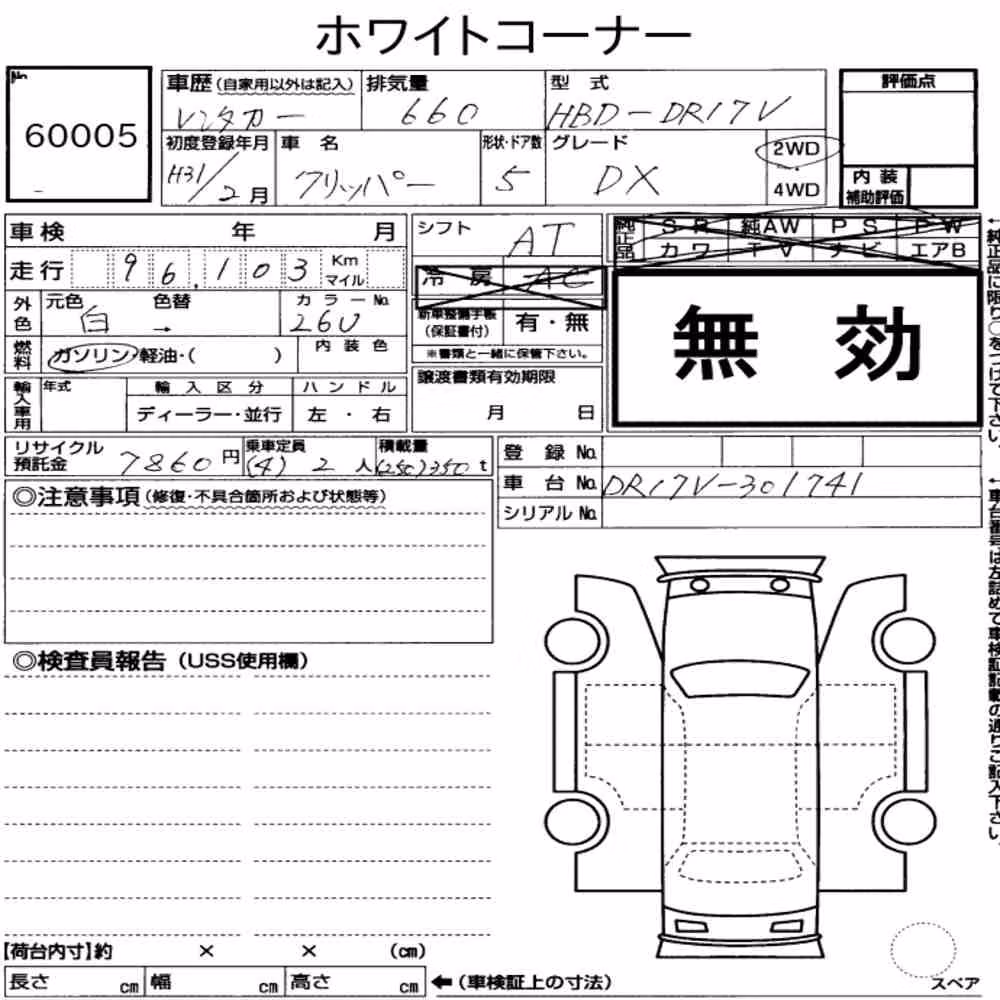 ホワイトコーナー
No. 60005
車歴(自家用以外は記入) レンタカー
排気量 660
型式 HBD-DR17V
評価点
初度登録年月 H31/2月
車名 クリッパー
形状・ドア数 5
グレード DX
2WD
4WD
内装補助評価
車検 年 月
シフト AT
純正品 SR 純AW PS PW
カワ TV ナビ エアB
走行 96,103 Km マイル
冷房 AC
外色 元色 白 色替 → カラーNo. 26U
新車整備手帳(保証書付) 有・無
※書類と一緒に保管下さい。
無効
燃料 ガソリン・軽油・( ) 内装色
譲渡書類有効期限
月 日
輸入車用 年式 輸入区分 ハンドル
ディーラー・並行 左・右
リサイクル預託金 7860円
乗車定員 (4) 2人
積載量 (250)350 t
登録No.
車台No. DR17V-301741
シリアルNo.
◎注意事項(修復・不具合箇所および状態等)
◎検査員報告(USS使用欄)
【荷台内寸】約 × × (cm)
長さ cm 幅 cm 高さ cm ←(車検証上の寸法)
スペア
←純正品に限り○をつけて下さい。
←車台番号は左詰めで車検証記載の通りご記入下さい。